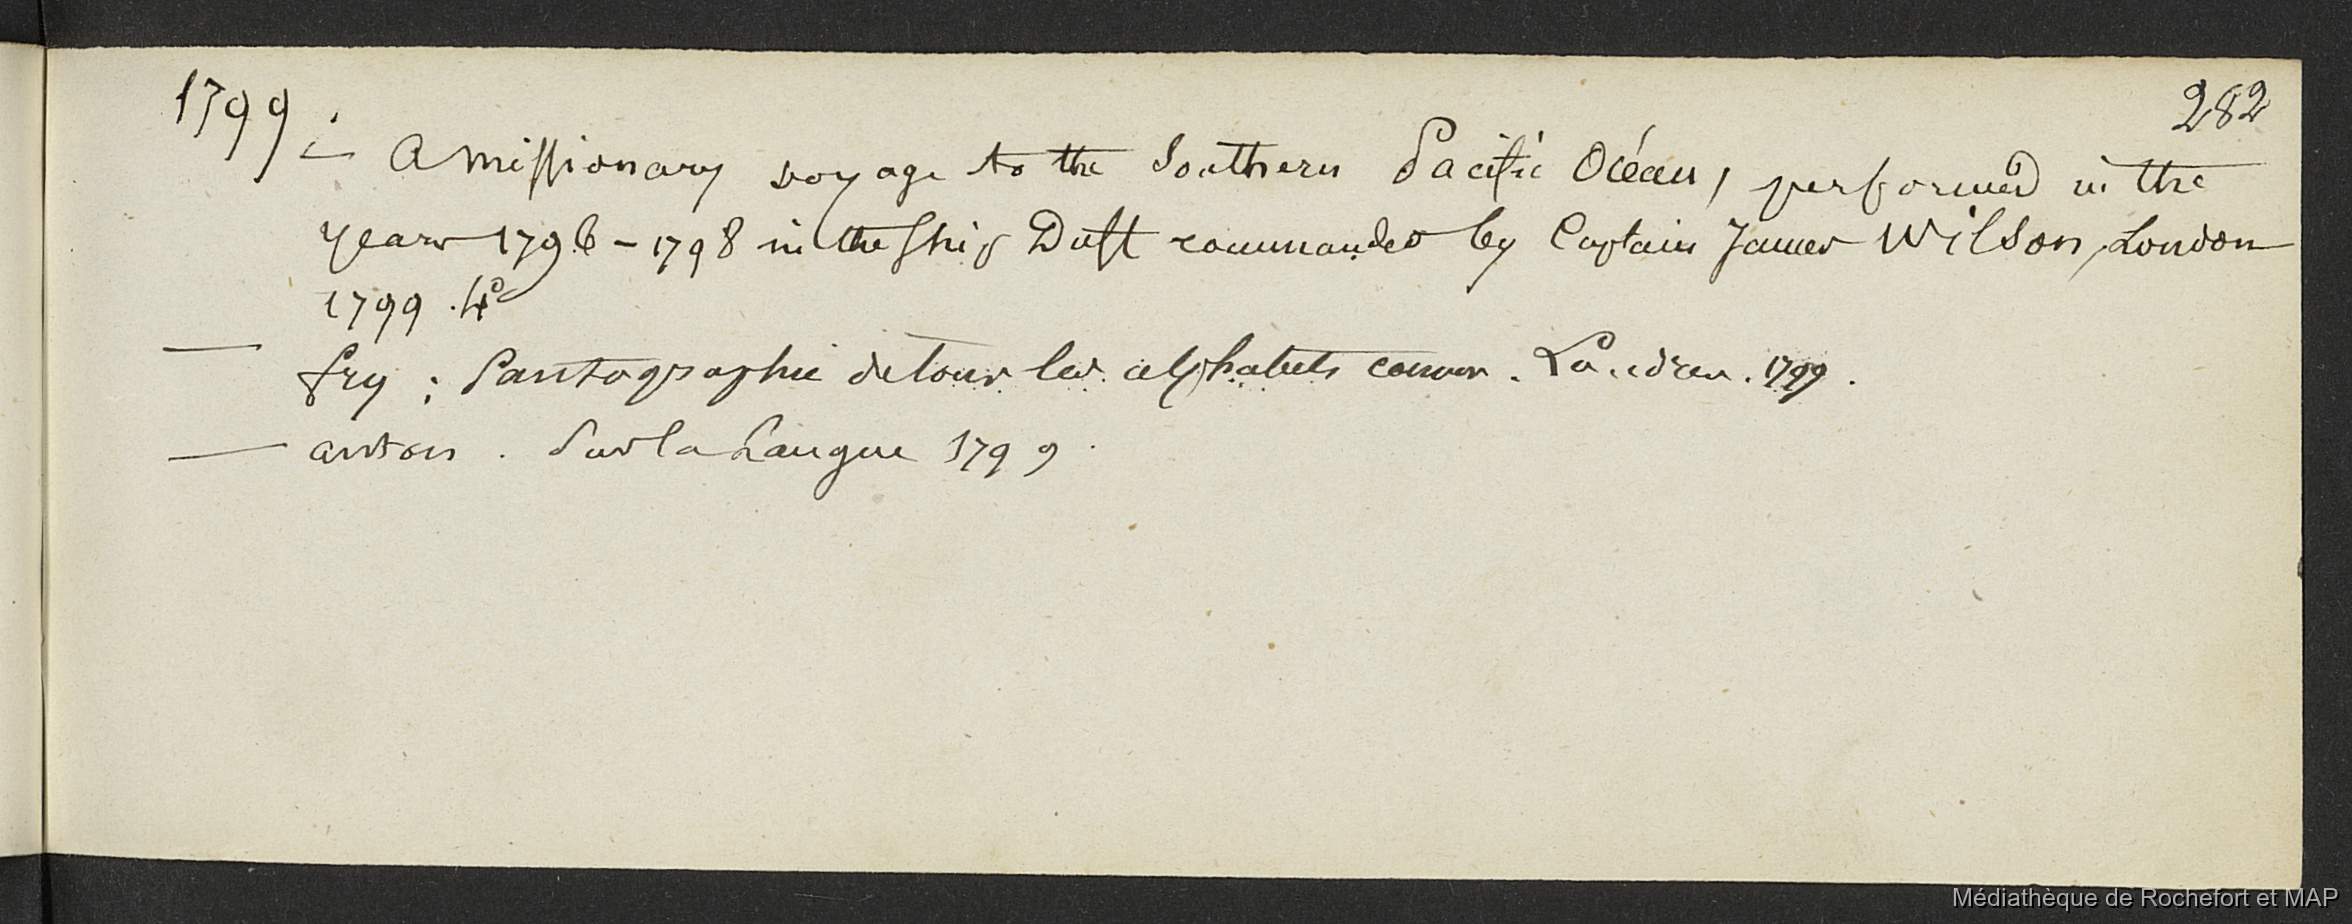 282
1799. — A missionary voyage to the Southern Pacific Océan, performed in the
years 1796 - 1798 in the ship Duff commanded by Captain James Wilson, London
1799. 4°
— fry ; Pantographie de tous les alphabets connus. Londres. 1799.
— anton. Sur la Langue 1799.
Médiathèque de Rochefort et MAP